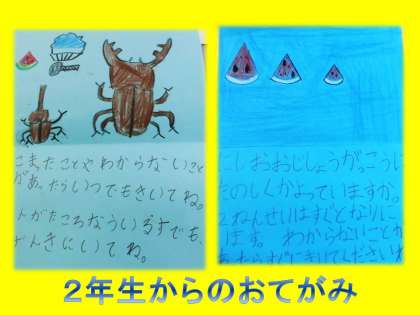 こまったことやわからないこと
があったらいつでもきいてね。
んがたころなういるすでも、
げんきにいてね。
にしおおじしょうがっこうに
たのしくかよっていますか。
2ねんせいはすぐとなりに
います。わからないことが
2年生からのおてがみ